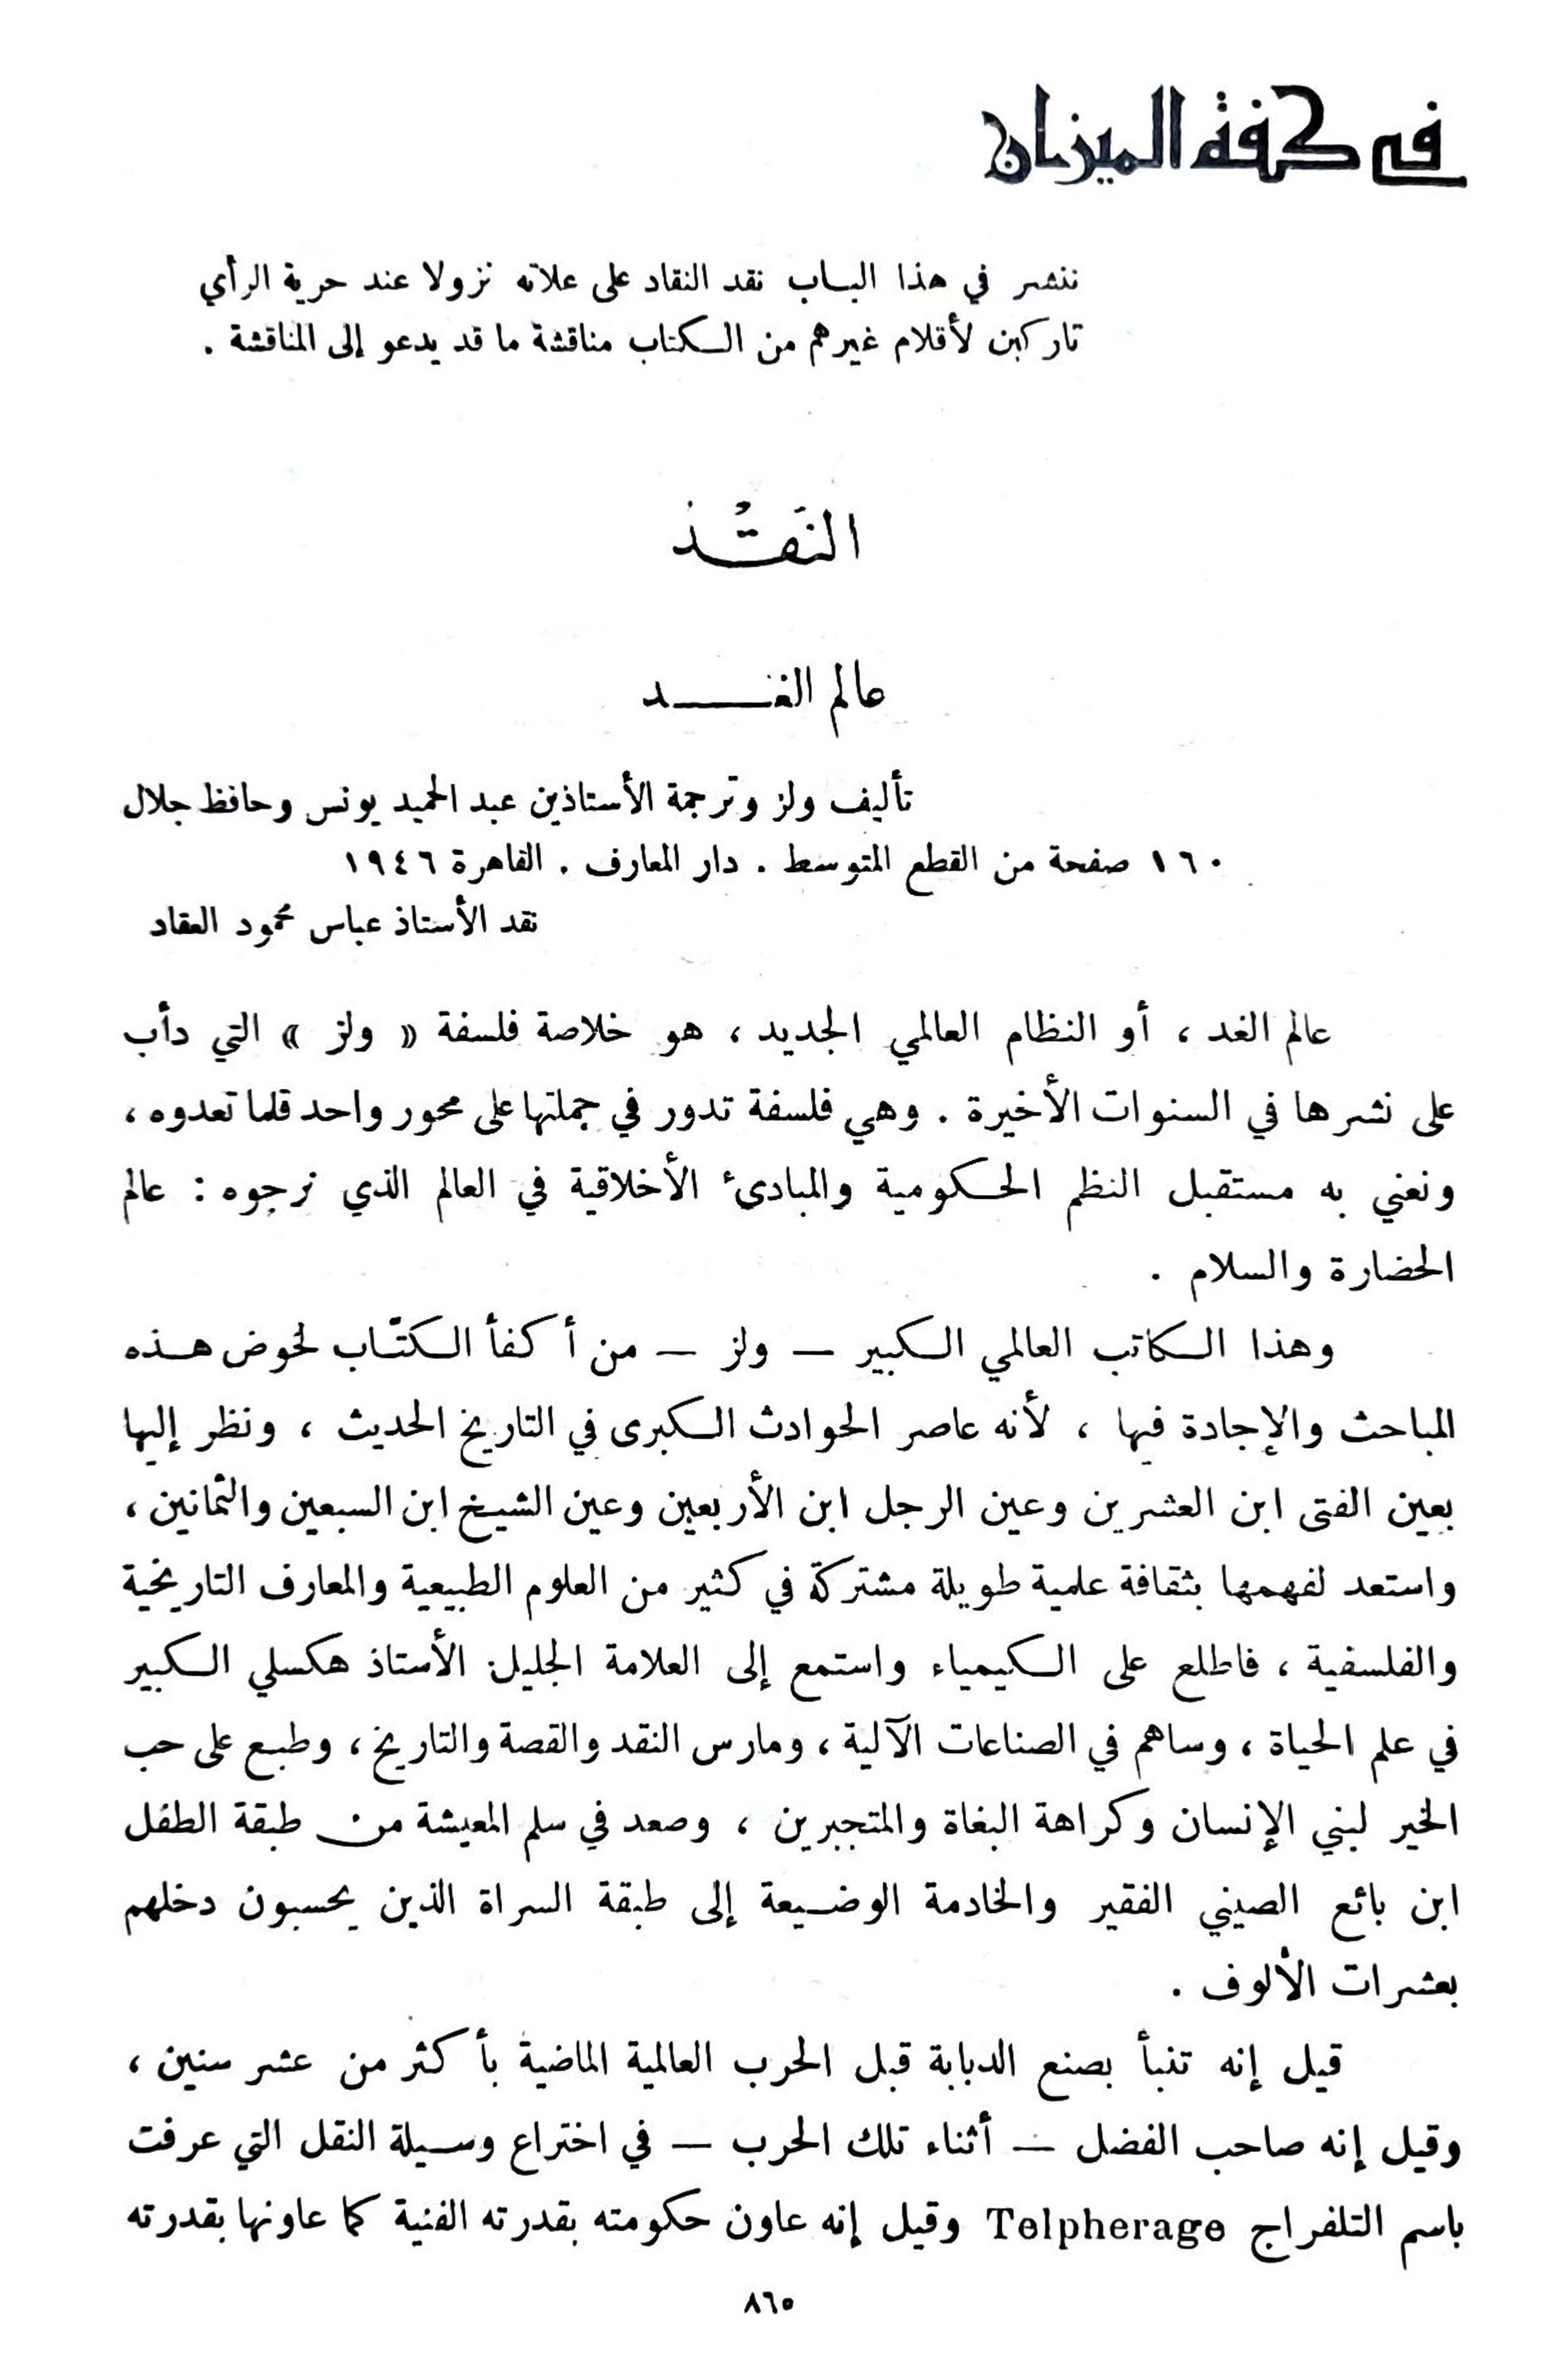 في كفة الميزان
ننشر في هذا الباب نقد النقاد على علاته نزولا عند حرية الرأي
تاركين لأقلام غيرهم من الكتاب مناقشة ما قد يدعو إلى المناقشة .
النقد
عالم الغد
تأليف ولز وترجمة الأستاذين عبد الحميد يونس وحافظ جلال
١٦٠ صفحة من القطع المتوسط . دار المعارف . القاهرة ١٩٤٦
نقد الأستاذ عباس محمود العقاد
عالم الغد ، أو النظام العالمي الجديد ، هو خلاصة فلسفة « ولز » التي دأب
على نشرها في السنوات الأخيرة . وهي فلسفة تدور في جملتها على محور واحد قلما تعدوه ،
ونعني به مستقبل النظم الحكومية والمبادئ الأخلاقية في العالم الذي نرجوه : عالم
الحضارة والسلام .
وهذا الكاتب العالمي الكبير – ولز – من أكفأ الكتّاب لخوض هذه
المباحث والإجادة فيها ، لأنه عاصر الحوادث الكبرى في التاريخ الحديث ، ونظر إليها
بعين الفتى ابن العشرين وعين الرجل ابن الأربعين وعين الشيخ ابن السبعين والثمانين ،
واستعد لفهمها بثقافة علمية طويلة مشتركة في كثير من العلوم الطبيعية والمعارف التاريخية
والفلسفية ، فاطلع على الكيمياء واستمع إلى العلامة الجليل الأستاذ هكسلي الكبير
في علم الحياة ، وساهم في الصناعات الآلية ، ومارس النقد والقصة والتاريخ ، وطبع على حب
الخير لبني الإنسان وكراهة البغاة والمتجبرين ، وصعد في سلم المعيشة من طبقة الطفل
ابن بائع الصيني الفقير والخادمة الوضيعة إلى طبقة السراة الذين يحسبون دخلهم
بعشرات الألوف .
قيل إنه تنبأ بصنع الدبابة قبل الحرب العالمية الماضية بأكثر من عشر سنين ،
وقيل إنه صاحب الفضل – أثناء تلك الحرب – في اختراع وسيلة النقل التي عرفت
باسم التلفراج Telpherage وقيل إنه عاون حكومته بقدرته الفنية كما عاونها بقدرته
٨٦٥